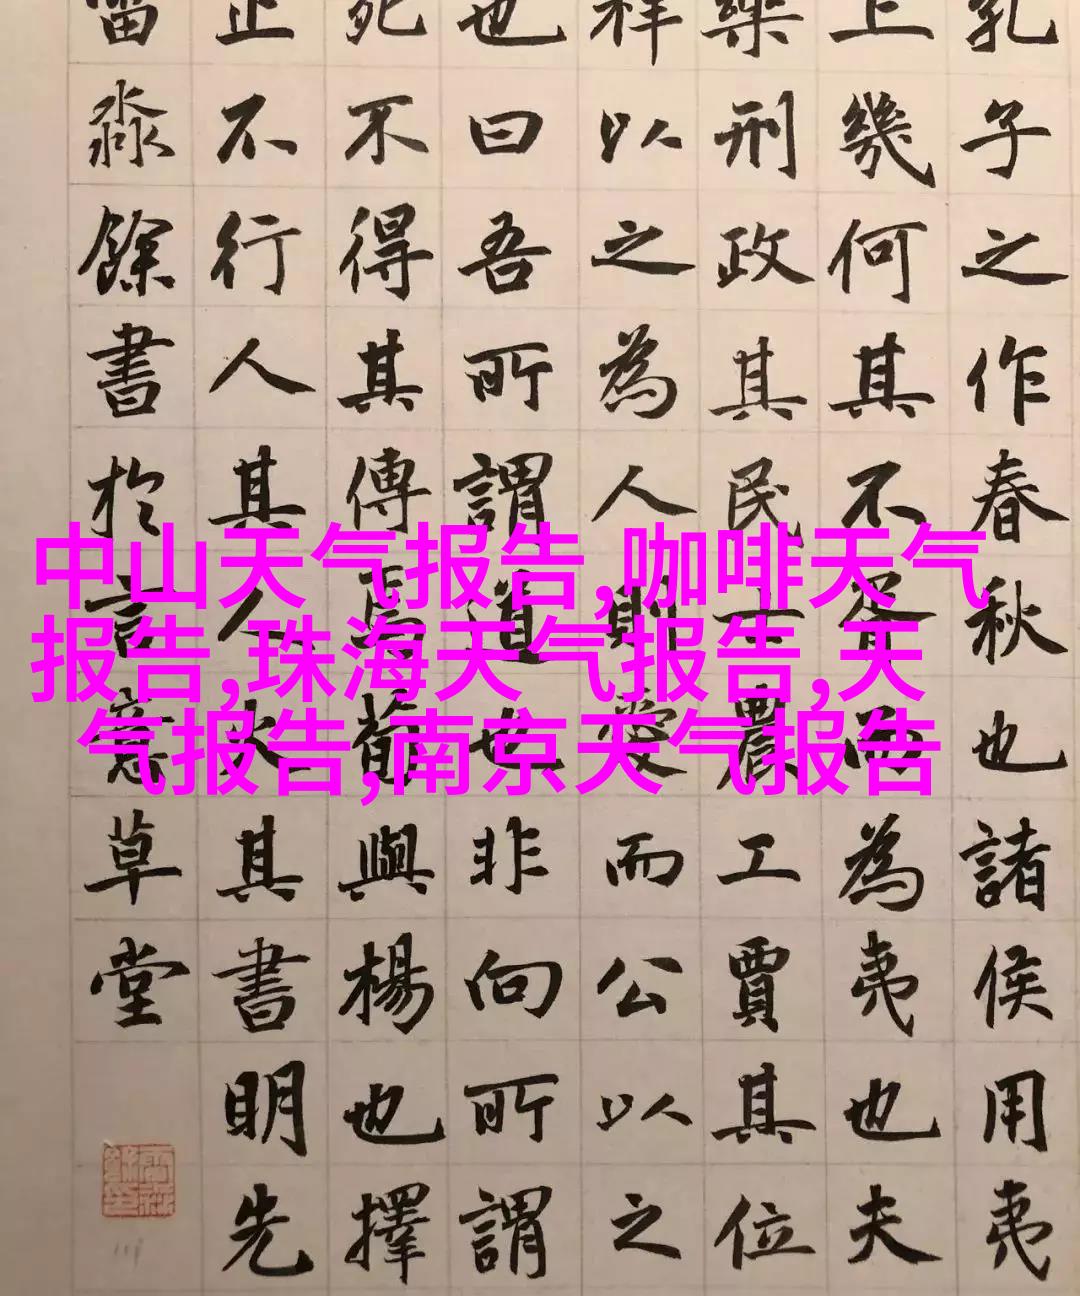 孔子之作春秋也諸侯用夷
上幾何其不胥而為夷也夫
樂刑政其民士農工賈其位
祥以之為人則愛而公以之
也曰吾所謂道也非向所謂
死不得其傳焉荀與楊也擇
止不行人其人火其書明先
淼餘書於言意草堂
中山天气报告,咖啡天气
报告,珠海天气报告,天
气报告,南京天气报告